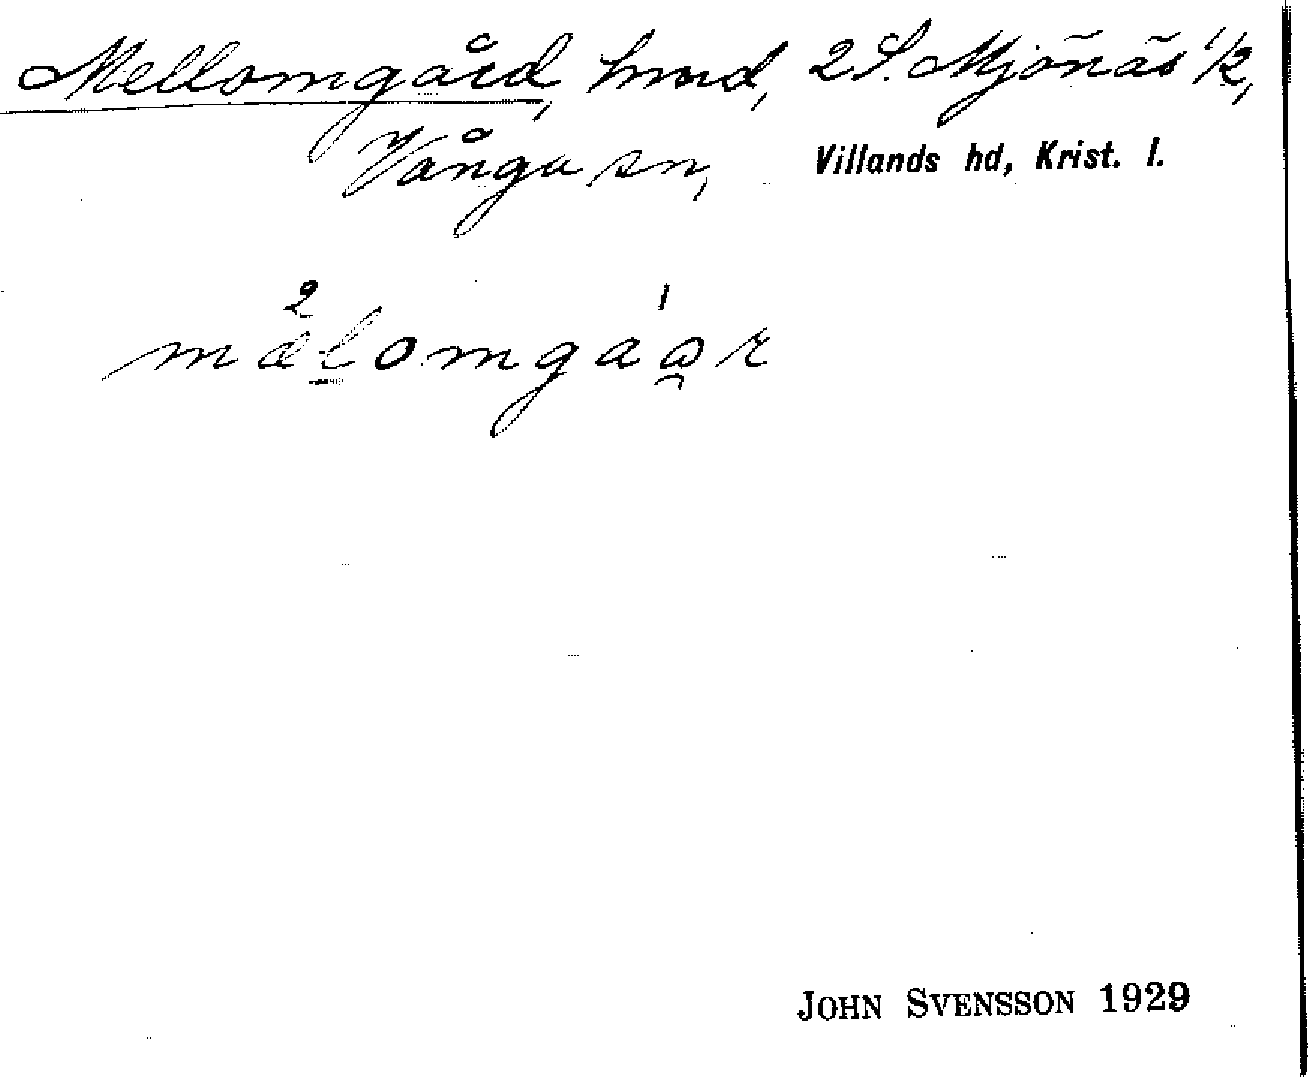 Mellomgård, hmd, 2 S. Mjönäs 1/2,
Vånga sn, Villands hd, Krist. l.
2 1
mælomgaar
JOHN SVENSSON 1929